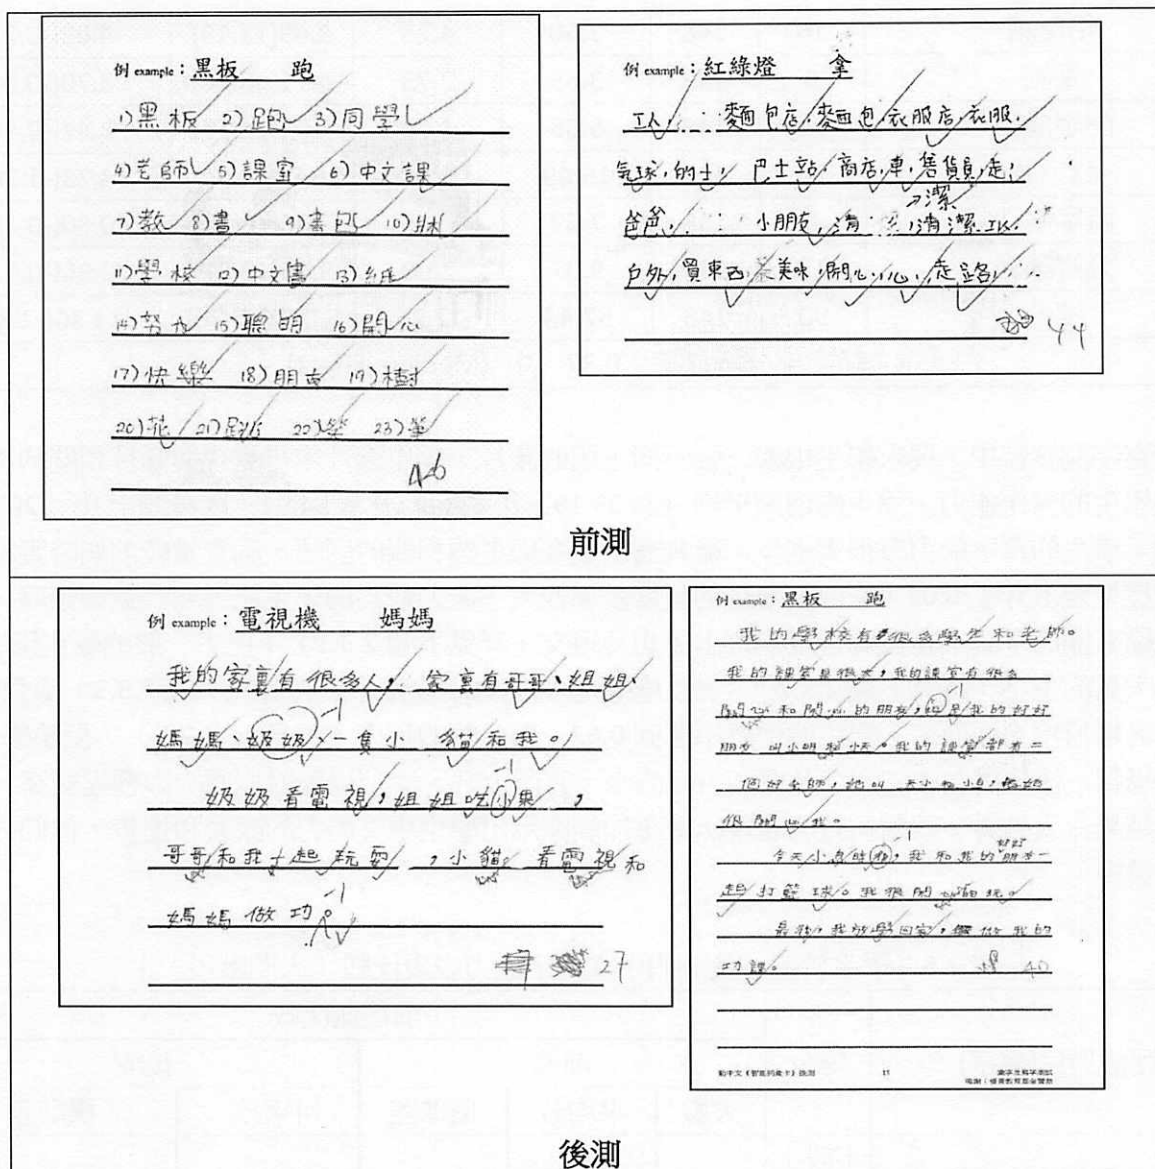 例 example：黑板 跑
1)黑板 2)跑 3)同學
4)老師 5)課室 6)中文課
7)教 8)書 9)書包 10)
11)學校 12)中文書 13)紙
14)努力 15)聰明 16)開心
17)快樂 18)朋友 19)樹
20)花 21)跳 22) 23)筆
46
例 example：紅綠燈 拿
工人，麵包店，麵包，衣服店，衣服，
気球，的士，巴士站，商店，車，售貨員，走，
潔
爸爸，小朋友，清潔，清潔工人，
戶外，買東西，美味，開心，心，走路，
44
前測
例 example：電視機 媽媽
我的家裏有很多人，家裏有哥哥、姐姐、
-1
媽媽、奶奶、一隻小貓和我。
-1
奶奶看電視，姐姐吃小果，
哥哥和我一起玩耍，小貓看電視和
-1
媽媽做功。
27
例 example：黑板 跑
我的學校有很多學生和老師。
我的課室是很大，我的課室有很多
-1
開心和開心的朋友，我的好好
朋友叫小明和小天。我的課室都有一
個好老師，她叫
很開心我。
-1 好好
今天小息時，我和我的朋友一
起打籃球。我很開心
最後，我放學回家，做我的
功課。 40
11
後測